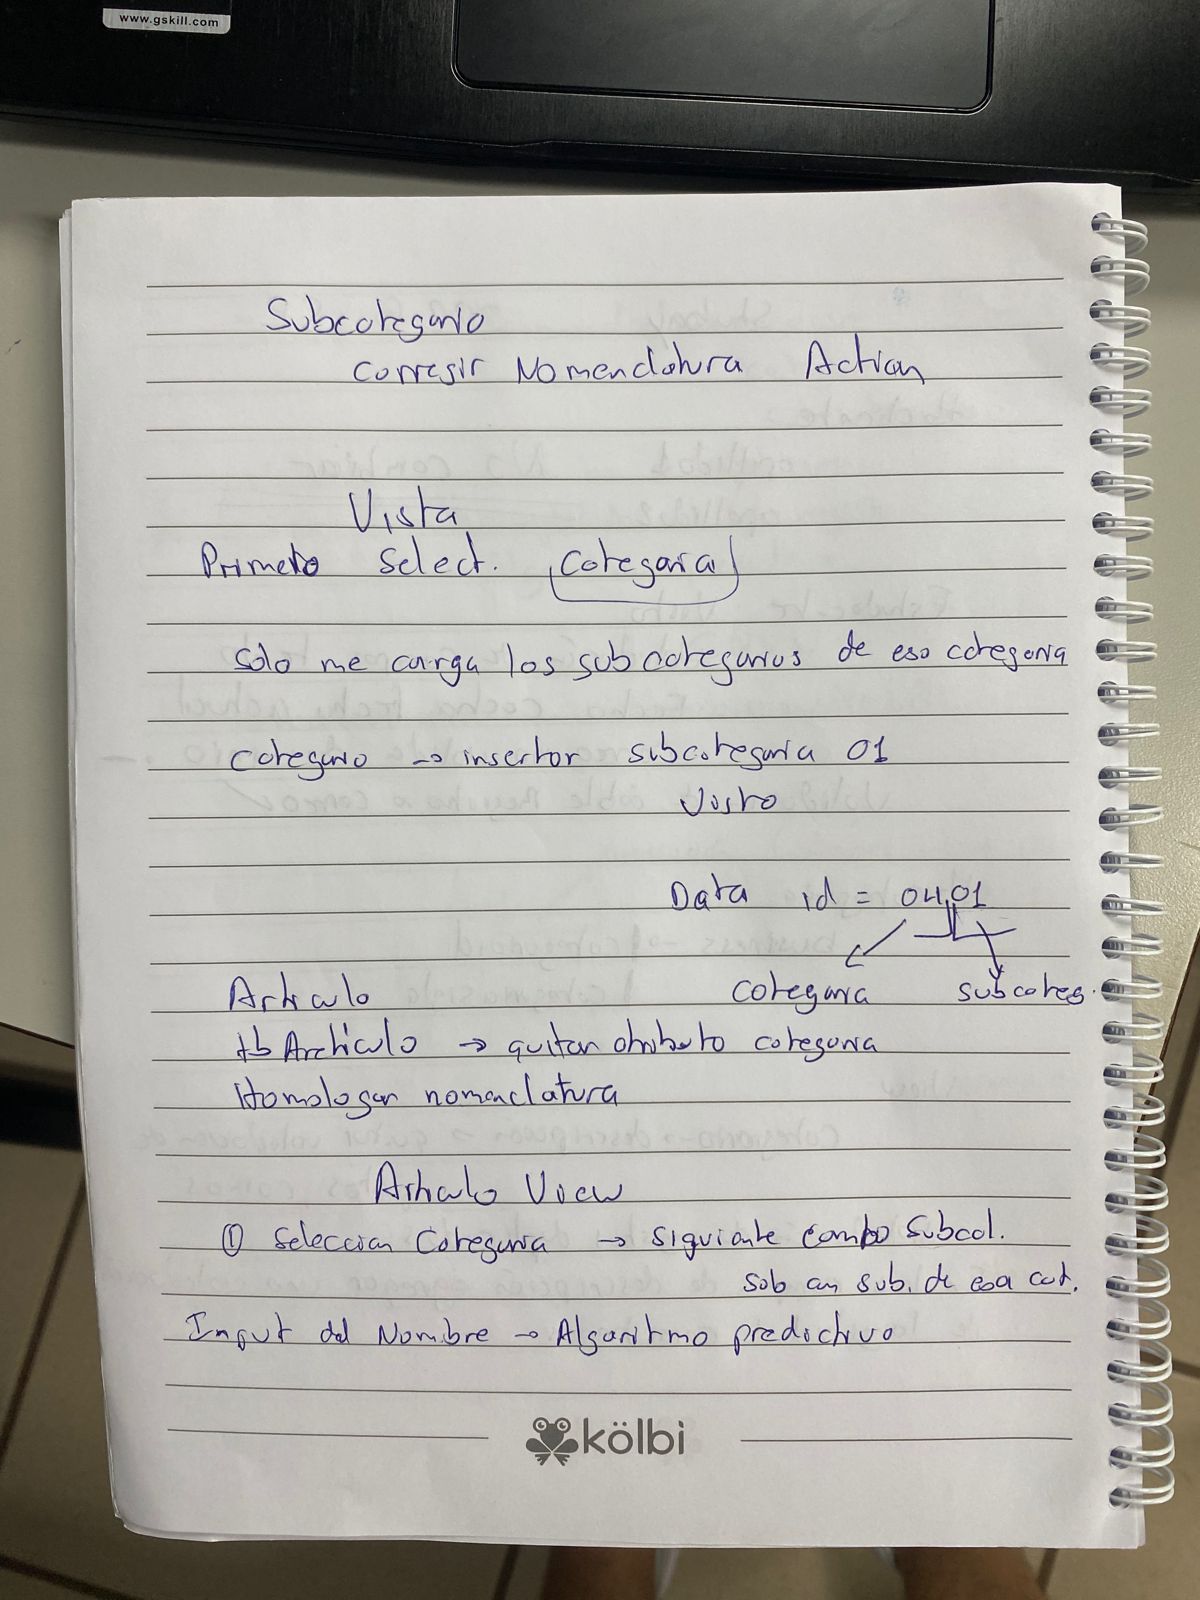 www.gskill.com
Subcategoria
corregir Nomenclatura Action
Vista
Primero select. Categoria
Solo me carga las subcategorias de esa categoria
categoria → insertar subcategoria 01
Vista
Data id = 0401
Articulo categoria subcateg.
tb Articulo → quitar atributo categoria
Homologar nomenclatura
Articulo View
① Seleccion Categoria → siguiente combo Subcat.
sub. de esa cat.
Input del Nombre → Algoritmo predictivo
kölbi